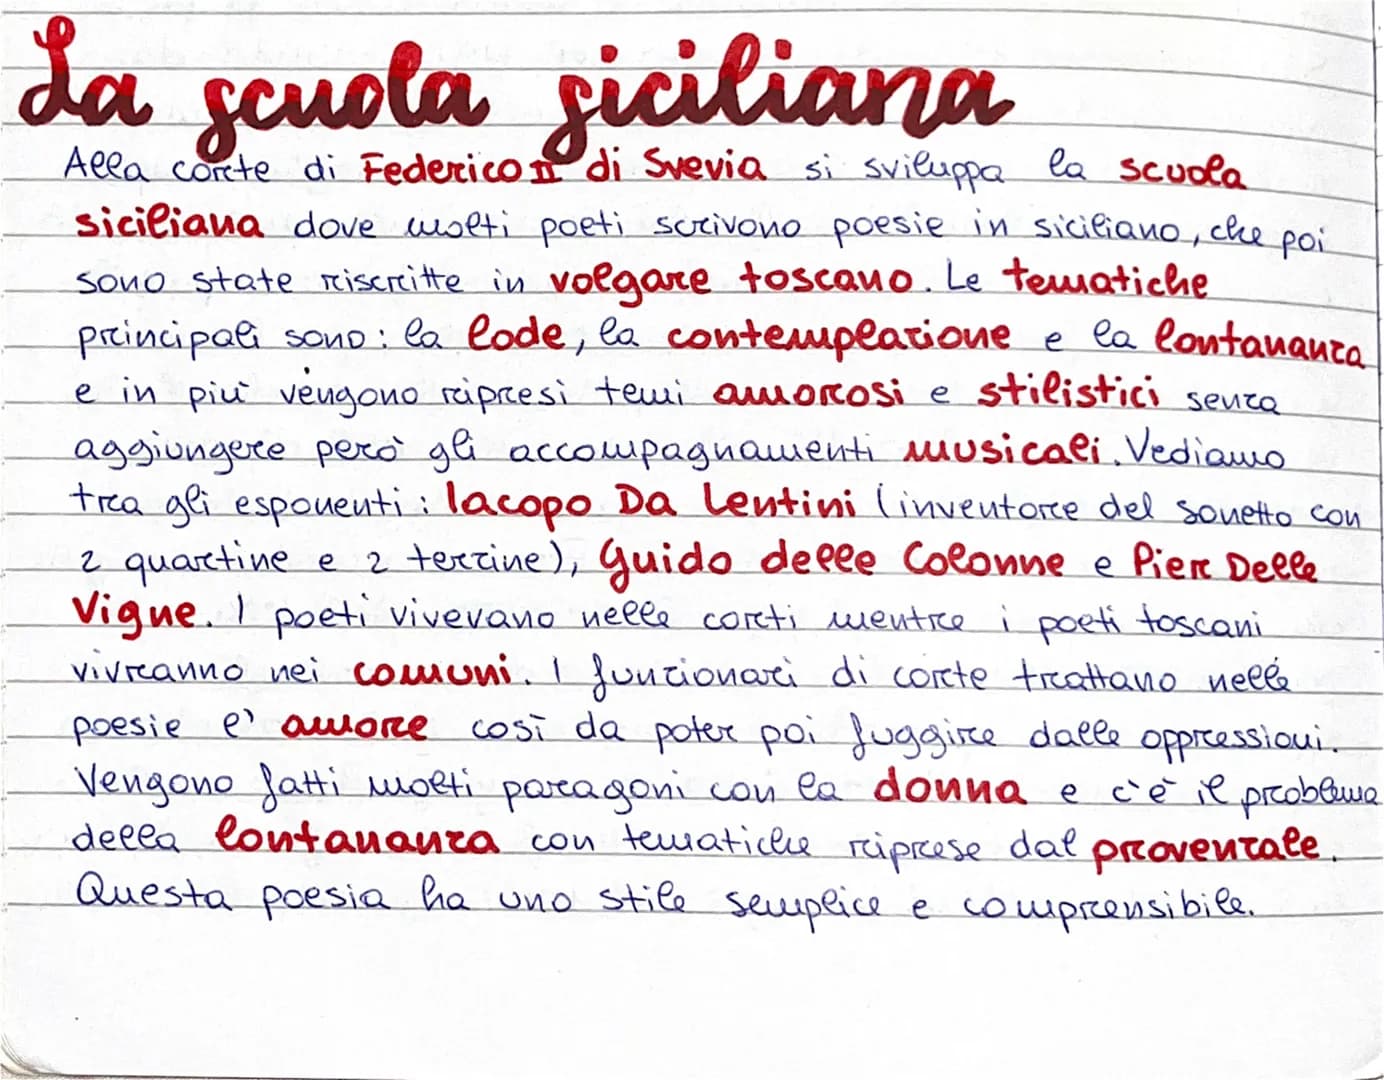 La scuola siciliana
Alla corte di Federico II di Svevia si sviluppa la scuola
siciliana dove molti poeti scrivono poesie in siciliano, che poi
sono state riscritte in volgare toscano. Le tematiche
principali sono: la lode, la contemplazione e la lontananza
e in più vengono ripresi temi amorosi e stilistici senza
aggiungere però gli accompagnamenti musicali. Vediamo
tra gli esponenti: Iacopo Da Lentini (inventore del sonetto con
2 quartine e 2 terzine), Guido delle Colonne e Pier Delle
Vigne. I poeti vivevano nelle corti mentre i poeti toscani
vivranno nei comuni. I funzionari di corte trattano nelle
poesie l' amore così da poter poi fuggire dalle oppressioni.
Vengono fatti molti paragoni con la donna e c'è il problema
della lontananza con tematiche riprese dal provenzale.
Questa poesia ha uno stile semplice e comprensibile.